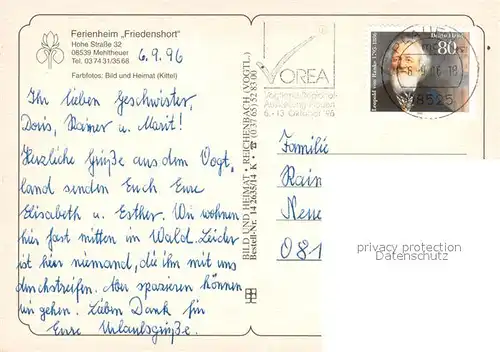 Ferienheim „Friedenshort"
Hohe Straße 32
08539 Mehltheuer
Tel. 03 74 31/35 68
Farbfotos: Bild und Heimat (Kittel)
6.9.96
Ihr lieben Geschwister,
Doris, Rainer u. Marit!
Herzliche Grüße aus dem Vogt-
land senden Euch Eure
Elisabeth u. Esther. Wir wohnen
hier fast mitten im Wald. Leider
ist hier niemand, die ihn mit uns
durchstreifen. Aber spazieren können
wir gehen. Lieben Dank für
Eure Urlaubsgrüße.
BILD UND HEIMAT • REICHENBACH (VOGTL.)
Bestell-Nr. 14 2635/14 K • ☎ (0 37 65) 52 83 00
VOREA
Vogtland Regional-
Ausstellung Plauen
6.-13. Oktober 96
Leopold von Ranke 1795-1886
80
08525
Familie
Rain
Neue
081
privacy protection
Datenschutz